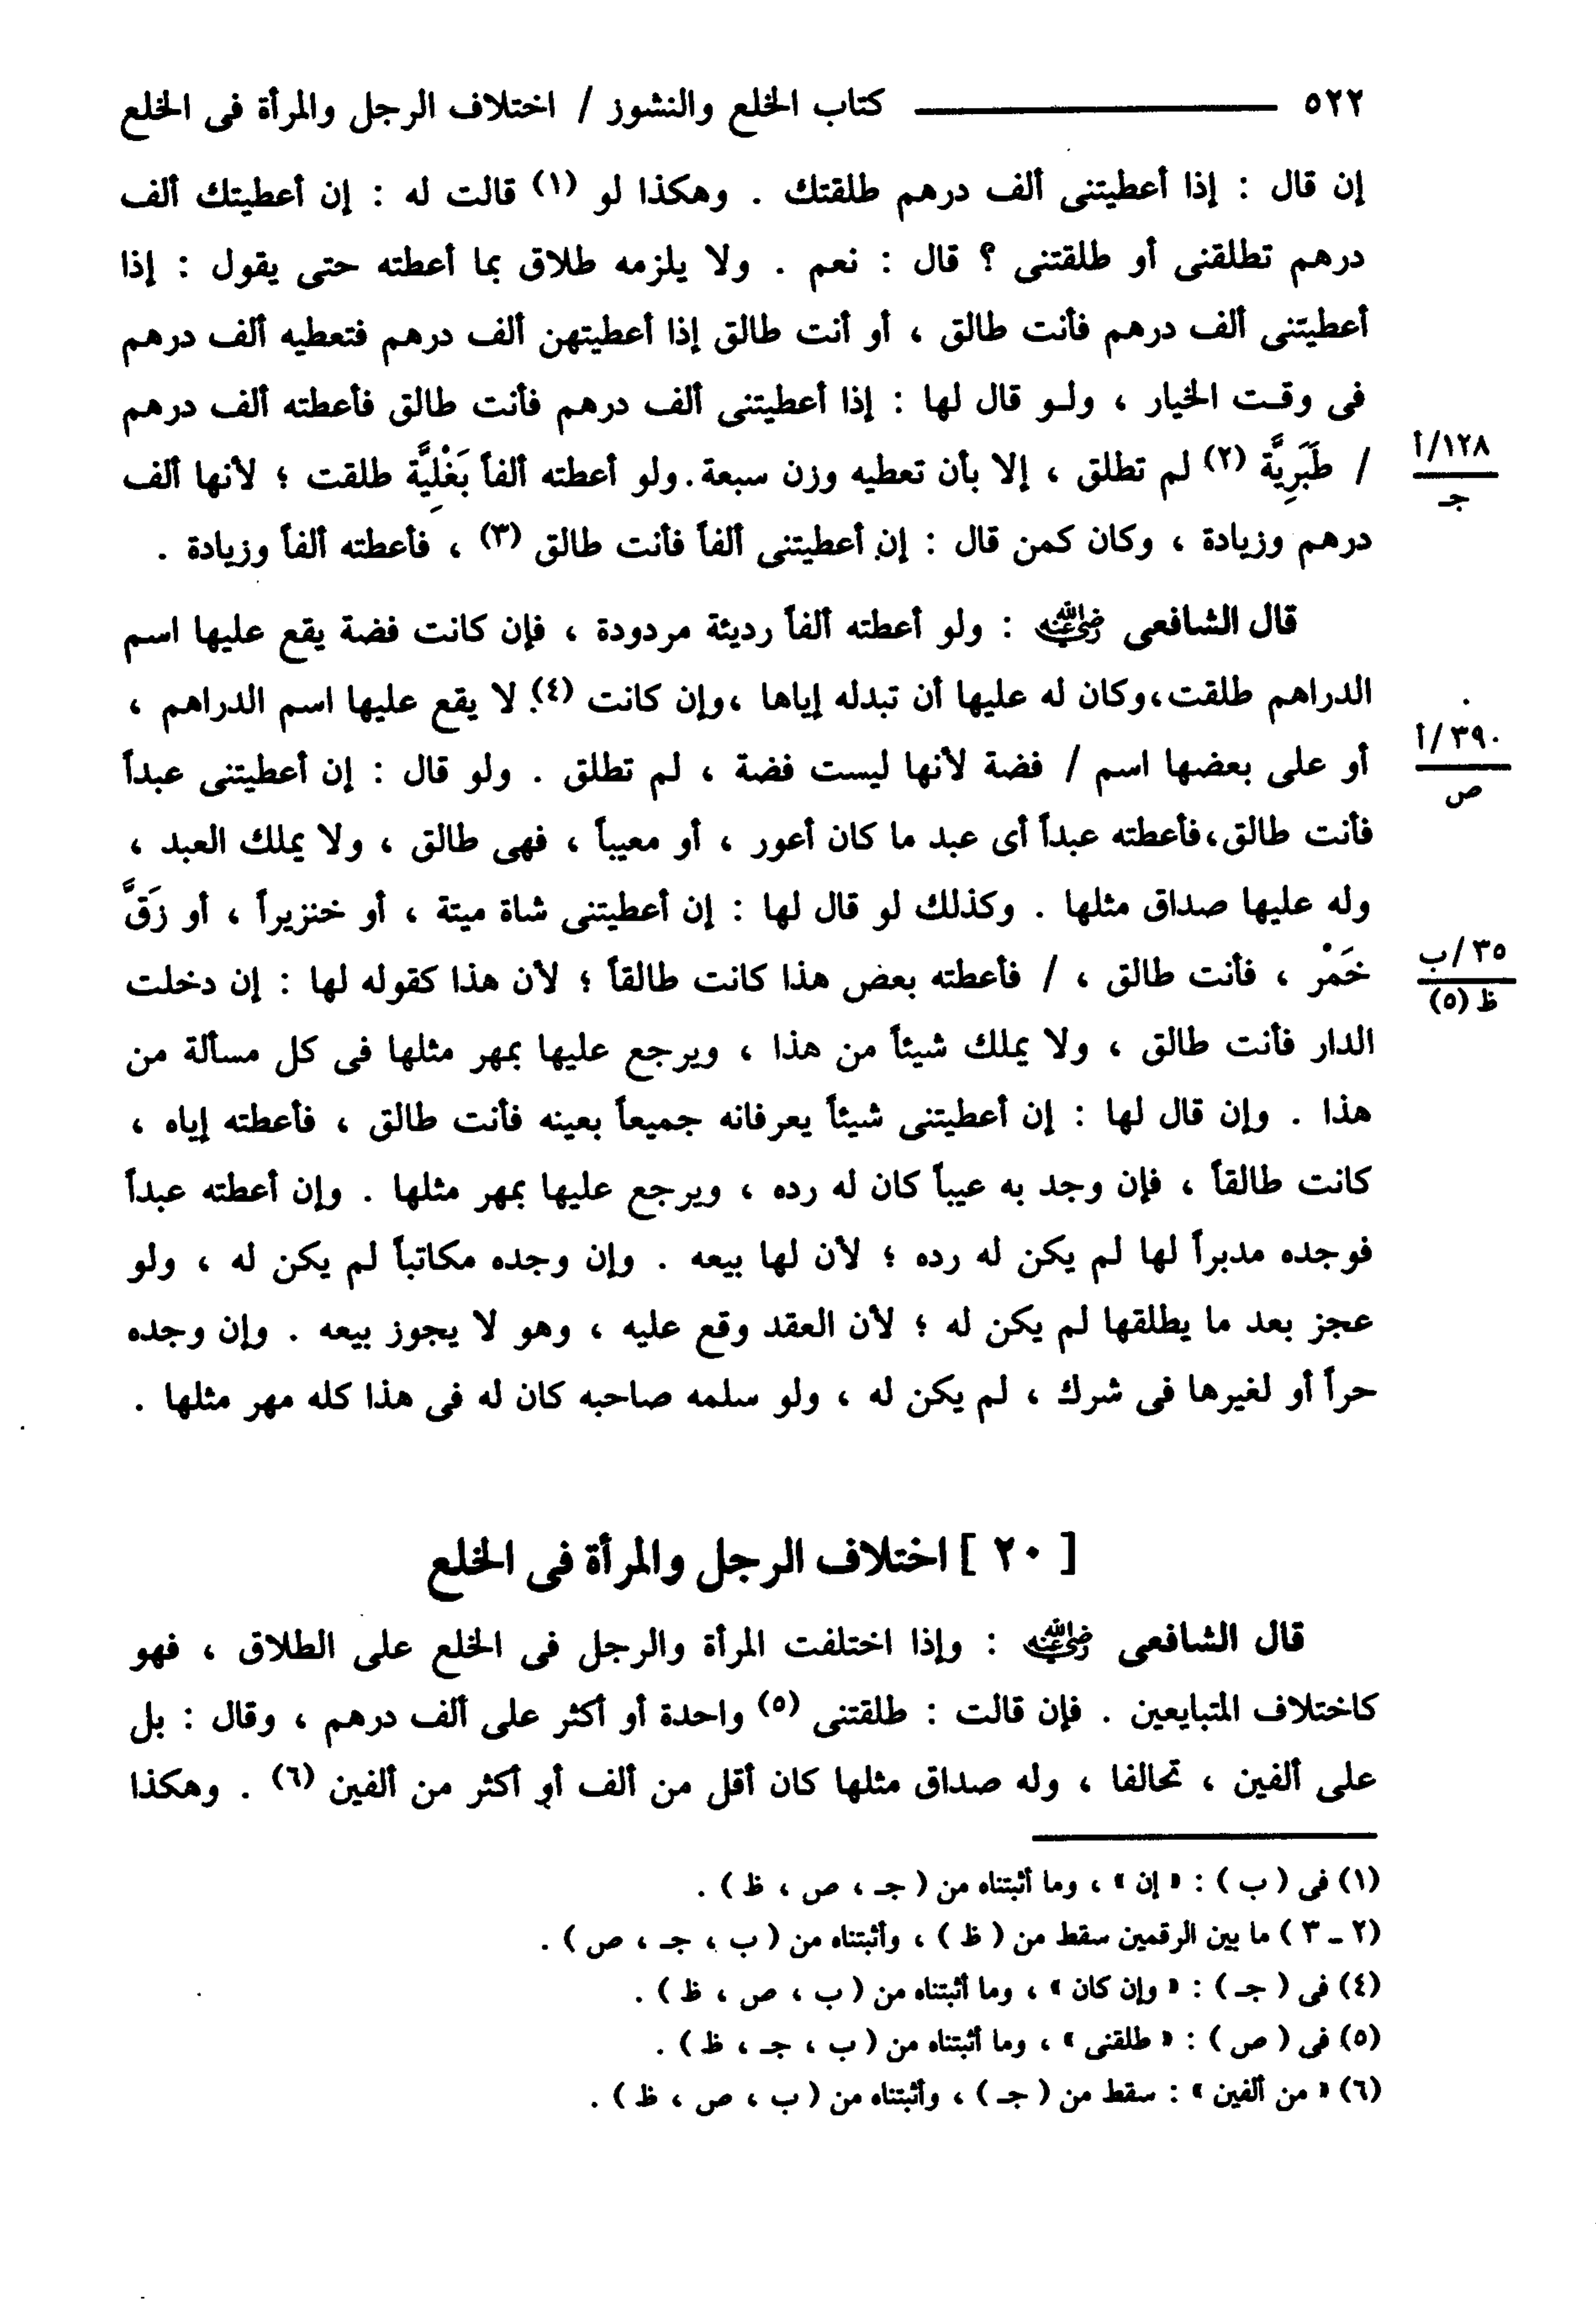 ٥٢٢ ــــــــــــــــ كتاب الخلع والنشوز / اختلاف الرجل والمرأة فى الخلع
إن قال : إذا أعطيتنى ألف درهم طلقتك . وهكذا لو (١) قالت له : إن أعطيتك ألف
درهم تطلقنى أو طلقتنى ؟ قال : نعم . ولا يلزمه طلاق بما أعطته حتى يقول : إذا
أعطيتنى ألف درهم فأنت طالق ، أو أنت طالق إذا أعطيتهن ألف درهم فتعطيه ألف درهم
فى وقـت الخيار ، ولـو قال لها : إذا أعطيتنى ألف درهم فأنت طالق فأعطته ألف درهم
١٢٨/أ
جـ
/ طَبَرِيَّة (٢) لم تطلق ، إلا بأن تعطيه وزن سبعة.ولو أعطته ألفاً بَغْلِيَّة طلقت ؛ لأنها ألف
درهم وزيادة ، وكان كمن قال : إن أعطيتنى ألفاً فأنت طالق (٣) ، فأعطته ألفاً وزيادة .
قال الشافعى رضي الله عنه : ولو أعطته ألفاً رديئة مردودة ، فإن كانت فضة يقع عليها اسم
الدراهم طلقت،وكان له عليها أن تبدله إياها ،وإن كانت (٤) لا يقع عليها اسم الدراهم ،
٣٩٠/أ
ص
أو على بعضها اسم / فضة لأنها ليست فضة ، لم تطلق . ولو قال : إن أعطيتنى عبداً
فأنت طالق،فأعطته عبداً أى عبد ما كان أعور ، أو معيباً ، فهى طالق ، ولا يملك العبد ،
وله عليها صداق مثلها . وكذلك لو قال لها : إن أعطيتنى شاة ميتة ، أو خنزيراً ، أو زَقَّ
٣٥/ب
ظ (٥)
خَمْر ، فأنت طالق ، / فأعطته بعض هذا كانت طالقاً ؛ لأن هذا كقوله لها : إن دخلت
الدار فأنت طالق ، ولا يملك شيئاً من هذا ، ويرجع عليها بمهر مثلها فى كل مسألة من
هذا . وإن قال لها : إن أعطيتنى شيئاً يعرفانه جميعاً بعينه فأنت طالق ، فأعطته إياه ،
كانت طالقاً ، فإن وجد به عيباً كان له رده ، ويرجع عليها بمهر مثلها . وإن أعطته عبداً
فوجده مدبراً لها لم يكن له رده ؛ لأن لها بيعه . وإن وجده مكاتباً لم يكن له ، ولو
عجز بعد ما يطلقها لم يكن له ؛ لأن العقد وقع عليه ، وهو لا يجوز بيعه . وإن وجده
حراً أو لغيرها فى شرك ، لم يكن له ، ولو سلمه صاحبه كان له فى هذا كله مهر مثلها .
[ ٢٠ ] اختلاف الرجل والمرأة فى الخلع
قال الشافعى رضي الله عنه : وإذا اختلفت المرأة والرجل فى الخلع على الطلاق ، فهو
كاختلاف المتبايعين . فإن قالت : طلقتنى (٥) واحدة أو أكثر على ألف درهم ، وقال : بل
على ألفين ، تحالفا ، وله صداق مثلها كان أقل من ألف أو أكثر من ألفين (٦) . وهكذا
(١) فى ( ب ) : « إن » ، وما أثبتناه من ( جـ ، ص ، ظ ) .
(٢ ـ ٣ ) ما بين الرقمين سقط من ( ظ ) ، وأثبتناه من ( ب ، جـ ، ص ) .
(٤) فى ( جـ ) : « وإن كان » ، وما أثبتناه من ( ب ، ص ، ظ ) .
(٥) فى ( ص ) : « طلقنى » ، وما أثبتناه من ( ب ، جـ ، ظ ) .
(٦) « من ألفين » : سقط من ( جـ ) ، وأثبتناه من ( ب ، ص ، ظ ) .